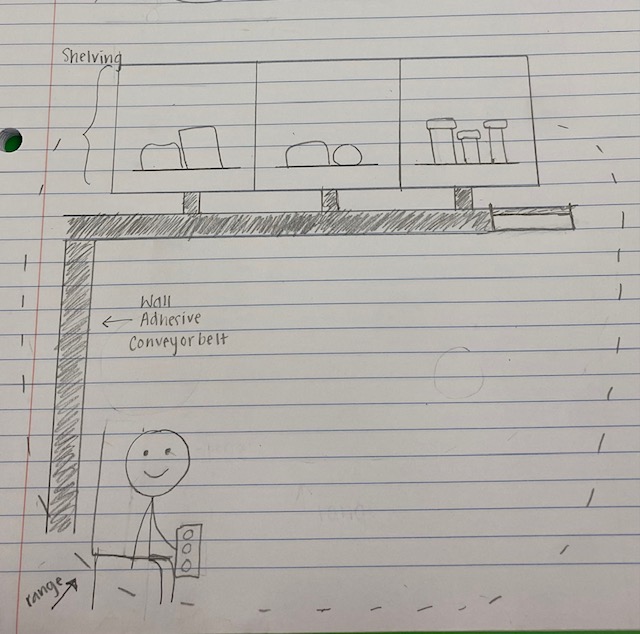 Shelving
Wall
Adhesive
Conveyor belt
range